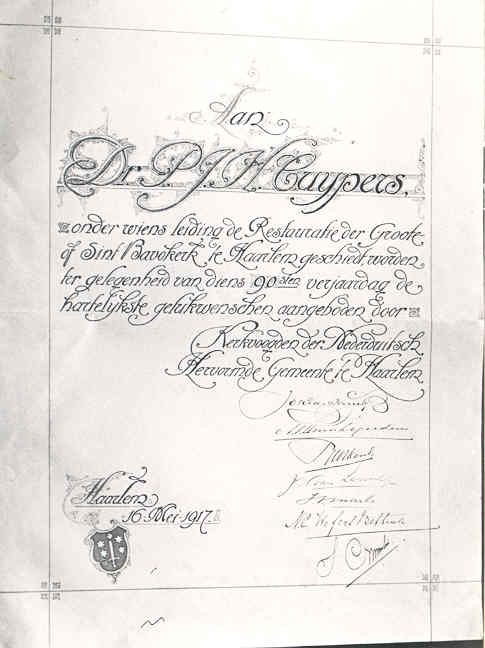 Aan
Dr. P.J.H. Cuypers.
onder wiens leiding de Restauratie der Groote
of Sint Bavokerk te Haarlem geschiedt worden
ter gelegenheid van diens 90sten verjaardag de
hartelijkste gelukwenschen aangeboden door
Kerkvoogden der Nederduitsch
Hervormde Gemeente te Haarlem
Haarlem
16 Mei 1917.